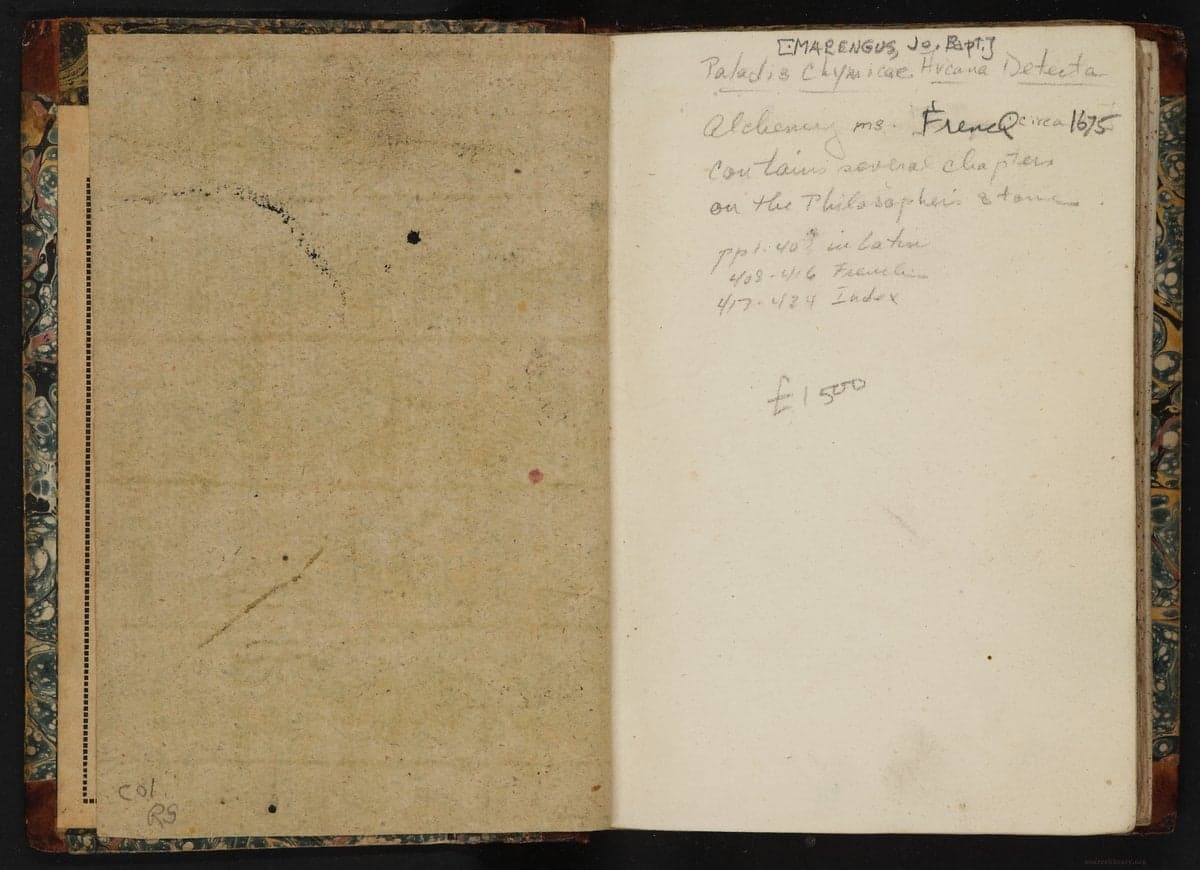 [MARENGUS, Jo. Bapt.]
Paladis Chymicae Arcana Detecta
Alchemy ms. French circa 1675
contains several chapters
on the Philosopher's stone.
pp 1-407 in Latin
408-416 French
417-424 Index
£1500
COL.
RS